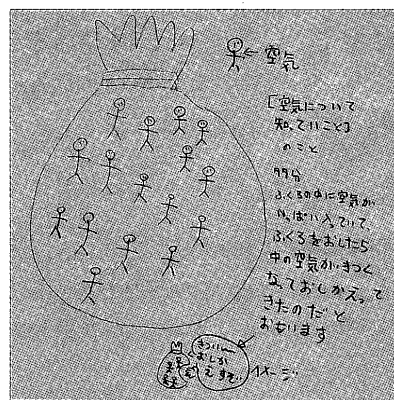 空気
[空気について
知っていこと]
のこと
多分
ふくろの中に空気が
いっぱい入っていて
ふくろをおしたら
中の空気が、きつく
なっておしかえって
きたのだと
おもいます
きついー
おしか
イメージ